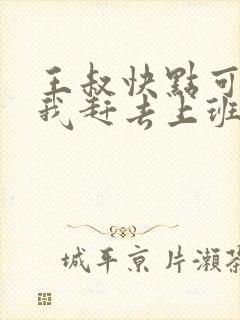 王叔快點可
我赶去上班
城平京 片瀨茶